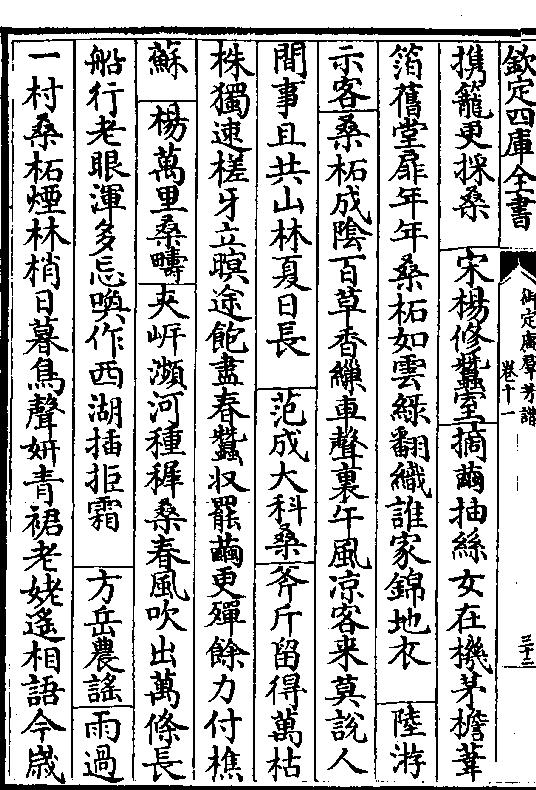 欽定四庫全書
御定廣羣芳譜
卷十一
三十二
携籠更採桑　宋楊修蠶室摘繭抽絲女在機茅檐葦
箔舊堂扉年年桑柘如雲綠翻織誰家錦地衣　陸游
示客桑柘成陰百草香繅車聲裏午風凉客来莫說人
間事且共山林夏日長　范成大科桑斧斤留得萬枯
株獨速槎牙立暝途飽盡春蠶収罷繭更殫餘力付樵
蘇　楊萬里桑疇夾岍瀕河種稺桑春風吹出萬條長
船行老眼渾多忘喚作西湖插拒霜　方岳農謠雨過
一村桑柘煙林梢日暮鳥聲妍青裙老姥遙相語今歲